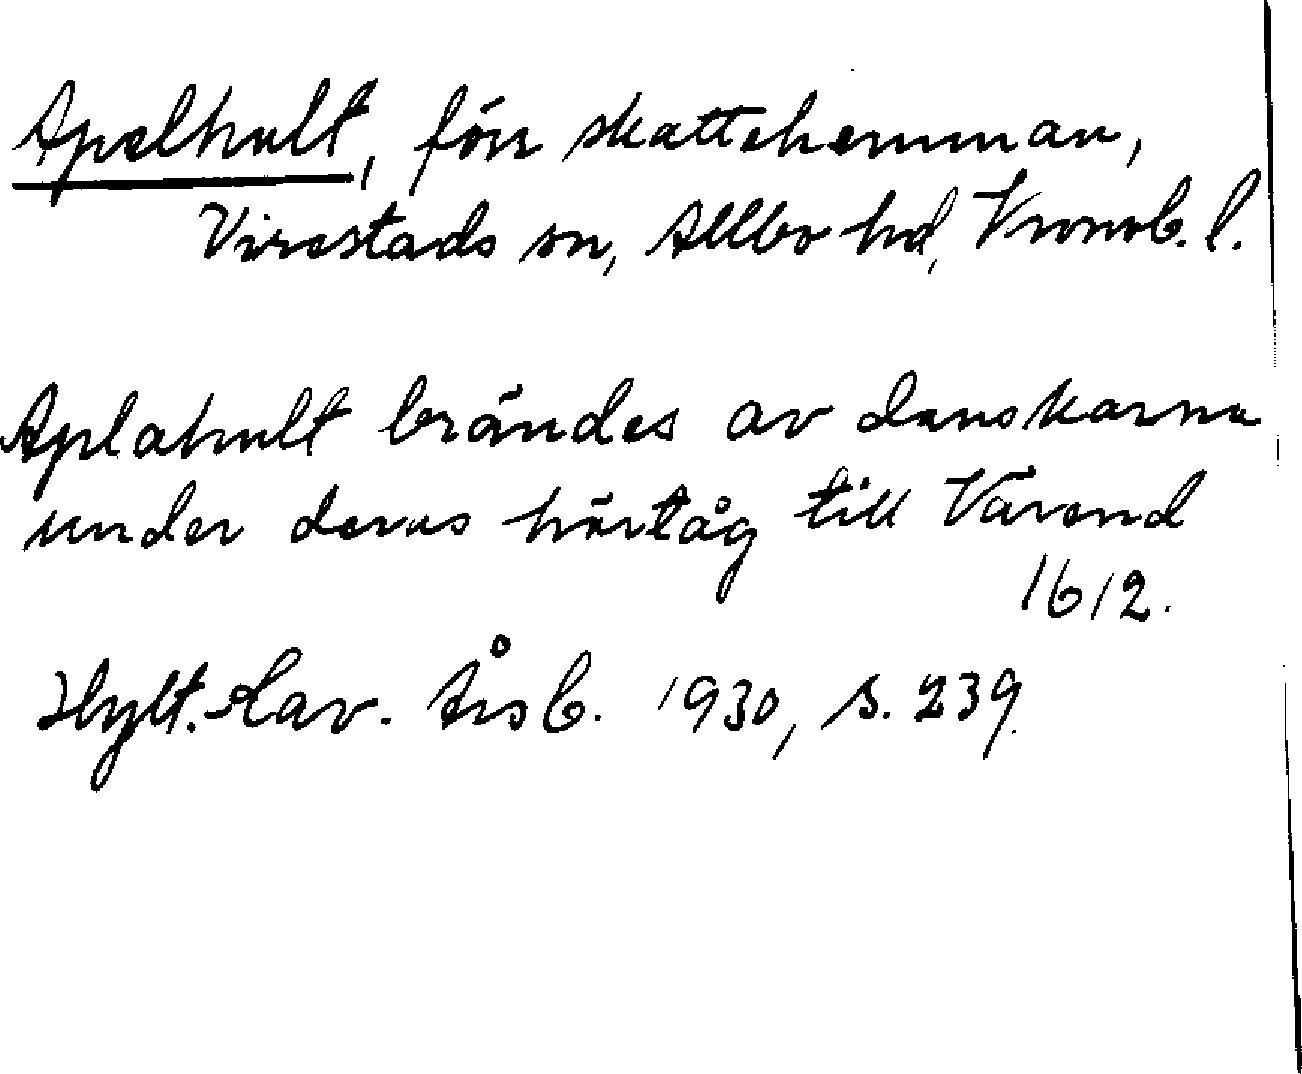 Apelhult, förr skattehemman,
Virestads sn, Allbo hd, Kronob. l.
Aplahult brändes av danskarna
under deras härtåg till Värend
1612.
Hylt.-Cav. Årsb. 1930, s. 239.